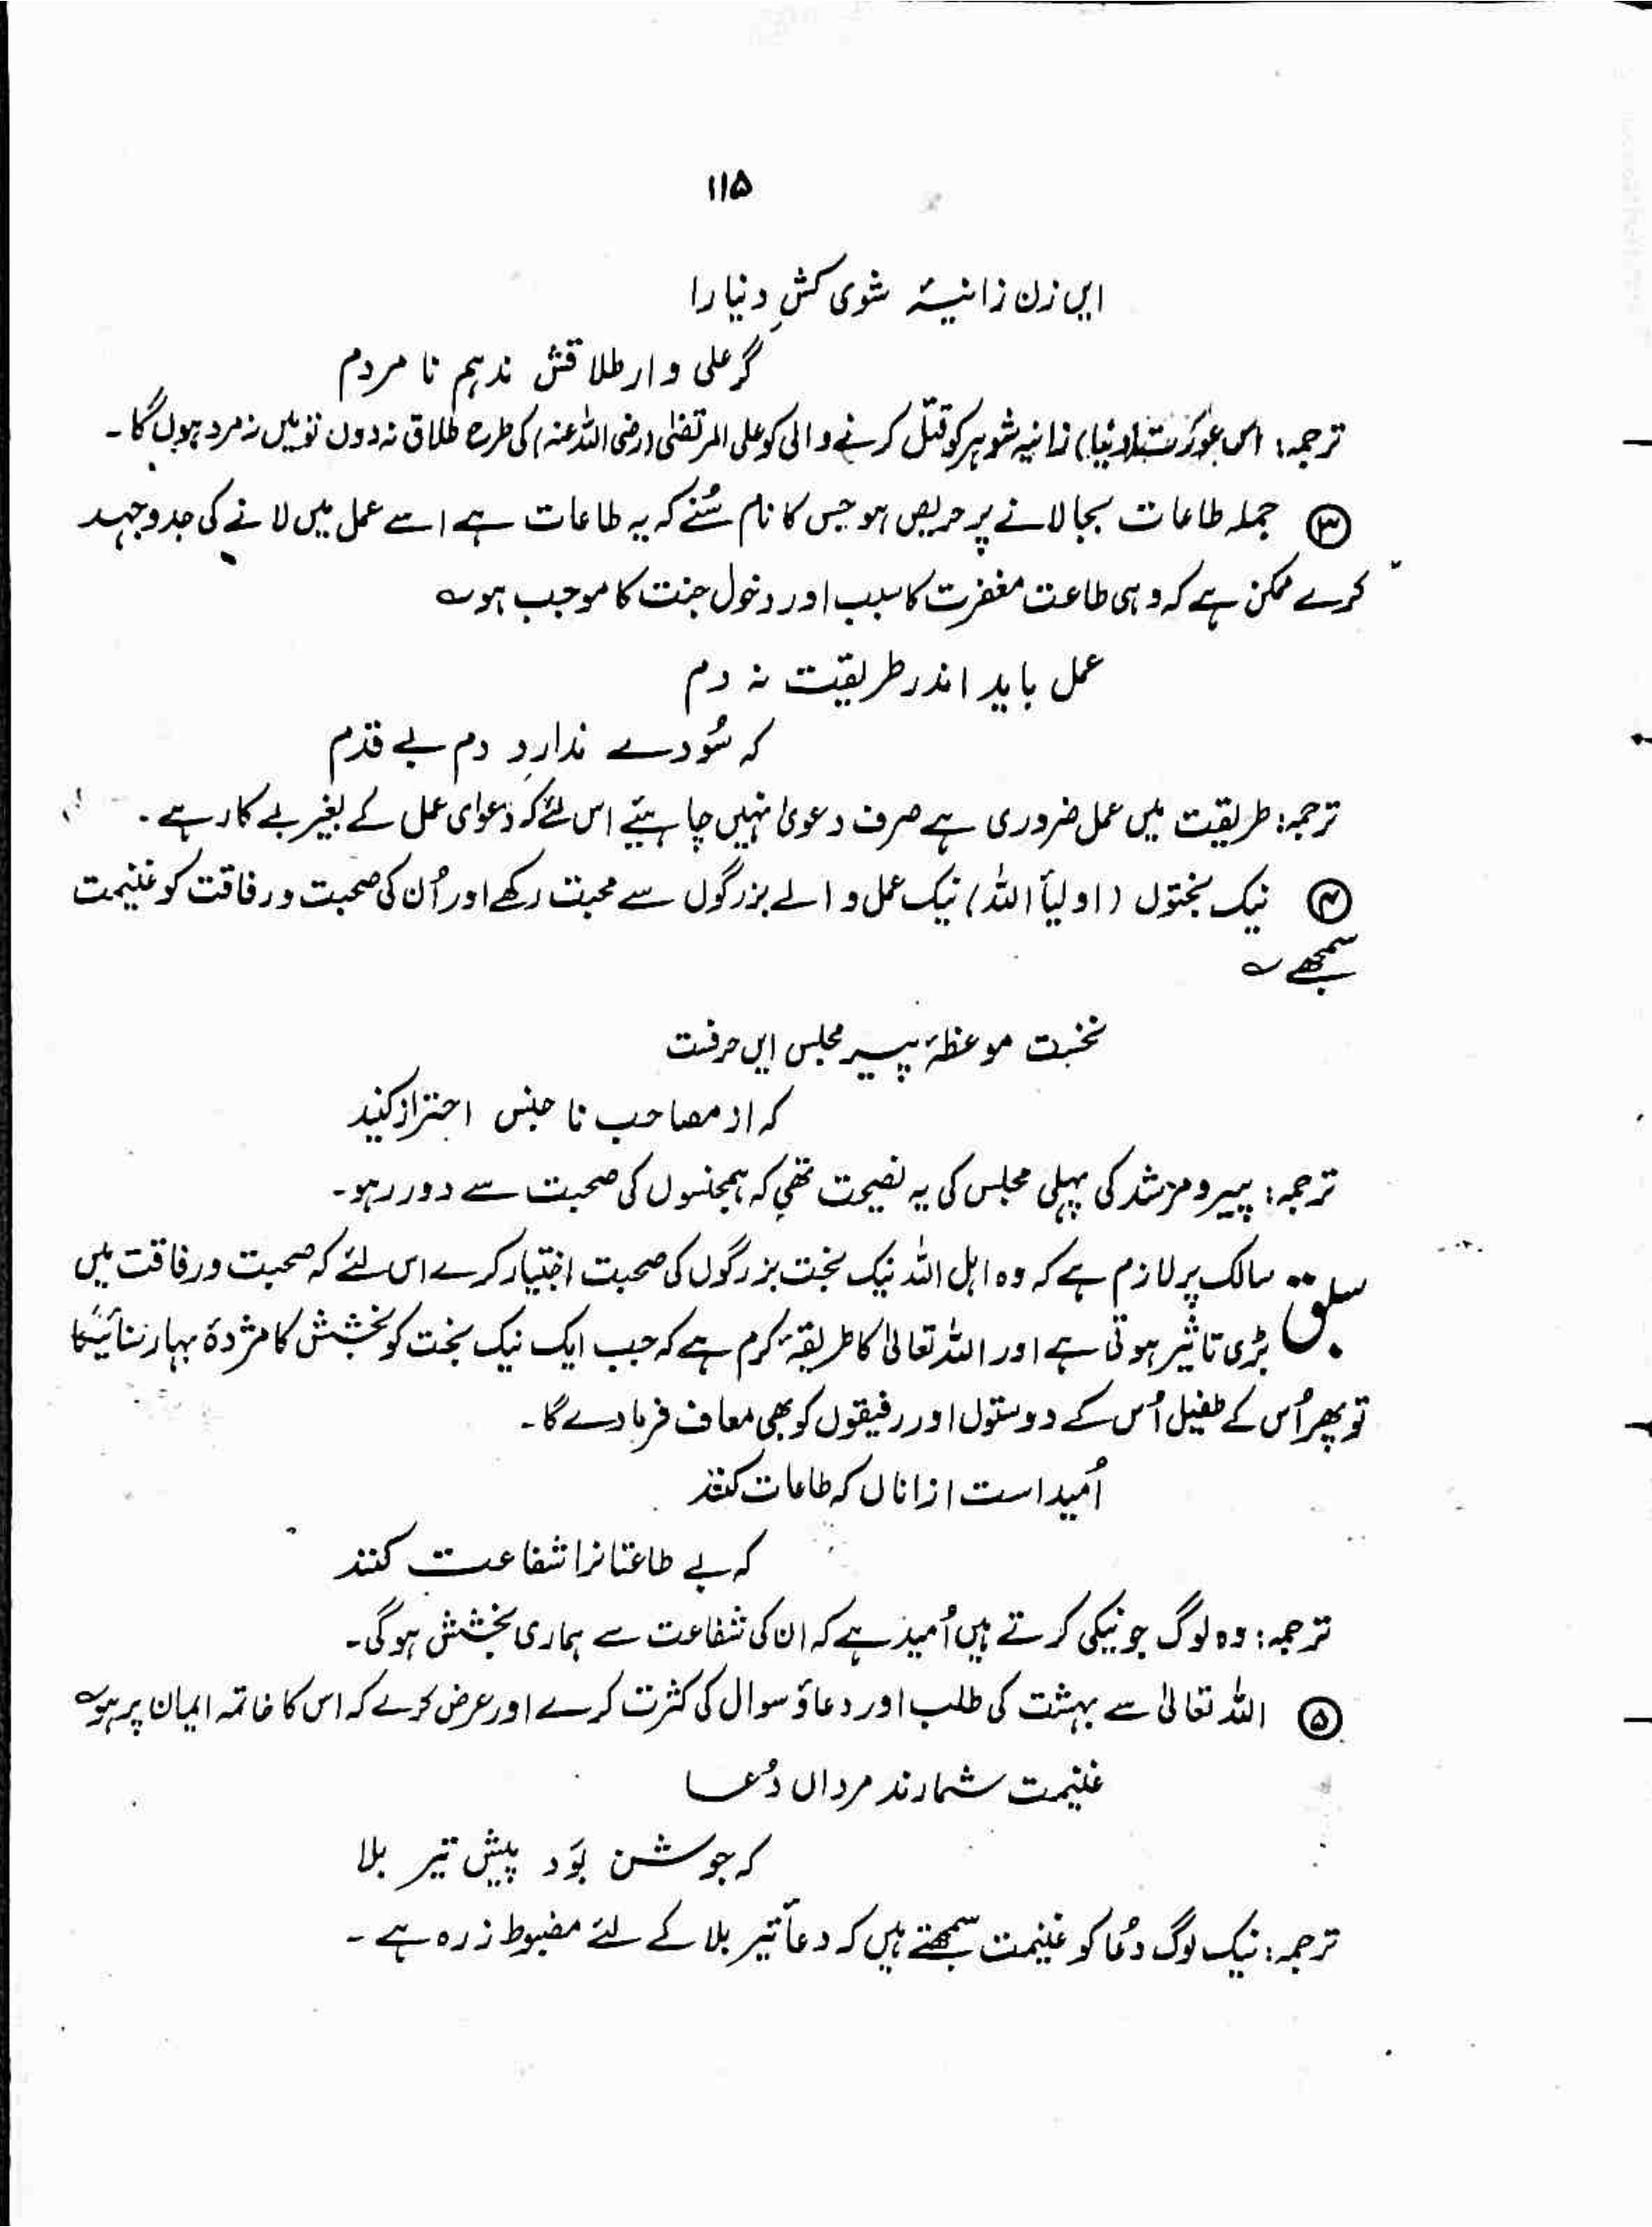 ۱۱۵
ایں زن زانیۂ شوی کشِ دنیا را
گر علی وار طلاقش ندہم نا مردم
ترجمہ: اس عورت (دنیا) زانیہ شوہر کو قتل کرنے والی کو علی المرتضیٰ (رضی اللہ عنہ) کی طرح طلاق نہ دوں تو میں نہ مرد ہوں گا۔
③ جملہ طاعات بجا لانے پر حریص ہو جس کا نام سُنے کہ یہ طاعات ہے اسے عمل میں لانے کی جدوجہد
کرے ممکن ہے کہ وہی طاعت مغفرت کا سبب اور دخول جنت کا موجب ہو ؎
عمل باید اندر طریقت نہ دم
کہ سُودے ندارد دم بے قدم
ترجمہ: طریقت میں عمل ضروری ہے صرف دعویٰ نہیں چاہیئے اس لئے کہ دعوای عمل کے بغیر بے کار ہے۔
④ نیک بختوں (اولیآ اللہ) نیک عمل والے بزرگوں سے محبت رکھے اور اُن کی صحبت و رفاقت کو غنیمت
سمجھے ؎
نخست موعظۂ پیر مجلس ایں حرفست
کہ از مصاحب نا جنس احتراز کنید
ترجمہ: پیر و مرشد کی پہلی مجلس کی یہ نصیحت تھی کہ ہمجنسوں کی صحبت سے دور رہو۔
سبق سالک پر لازم ہے کہ وہ اہل اللہ نیک بخت بزرگوں کی صحبت اختیار کرے اس لئے کہ صحبت و رفاقت میں
بڑی تاثیر ہوتی ہے اور اللہ تعالیٰ کا طریقۂ کرم ہے کہ جب ایک نیک بخت کو بخشش کا مژدۂ بہار سنائیگا
تو پھر اُس کے طفیل اُس کے دوستوں اور رفیقوں کو بھی معاف فرما دے گا۔
اُمید است از اناں کہ طاعات کنند
کہ بے طاعتانرا شفاعت کنند
ترجمہ: وہ لوگ جو نیکی کرتے ہیں اُمید ہے کہ ان کی شفاعت سے ہماری بخشش ہو گی۔
⑤ اللہ تعالیٰ سے بہشت کی طلب اور دعاؤ سوال کی کثرت کرے اور عرض کرے کہ اس کا خاتمہ ایمان پر ہو ؎
غنیمت شمارند مرداں دُعا
کہ جوشن بَود پیش تیر بلا
ترجمہ: نیک لوگ دُعا کو غنیمت سمجھتے ہیں کہ دعآ تیر بلا کے لئے مضبوط زرہ ہے۔